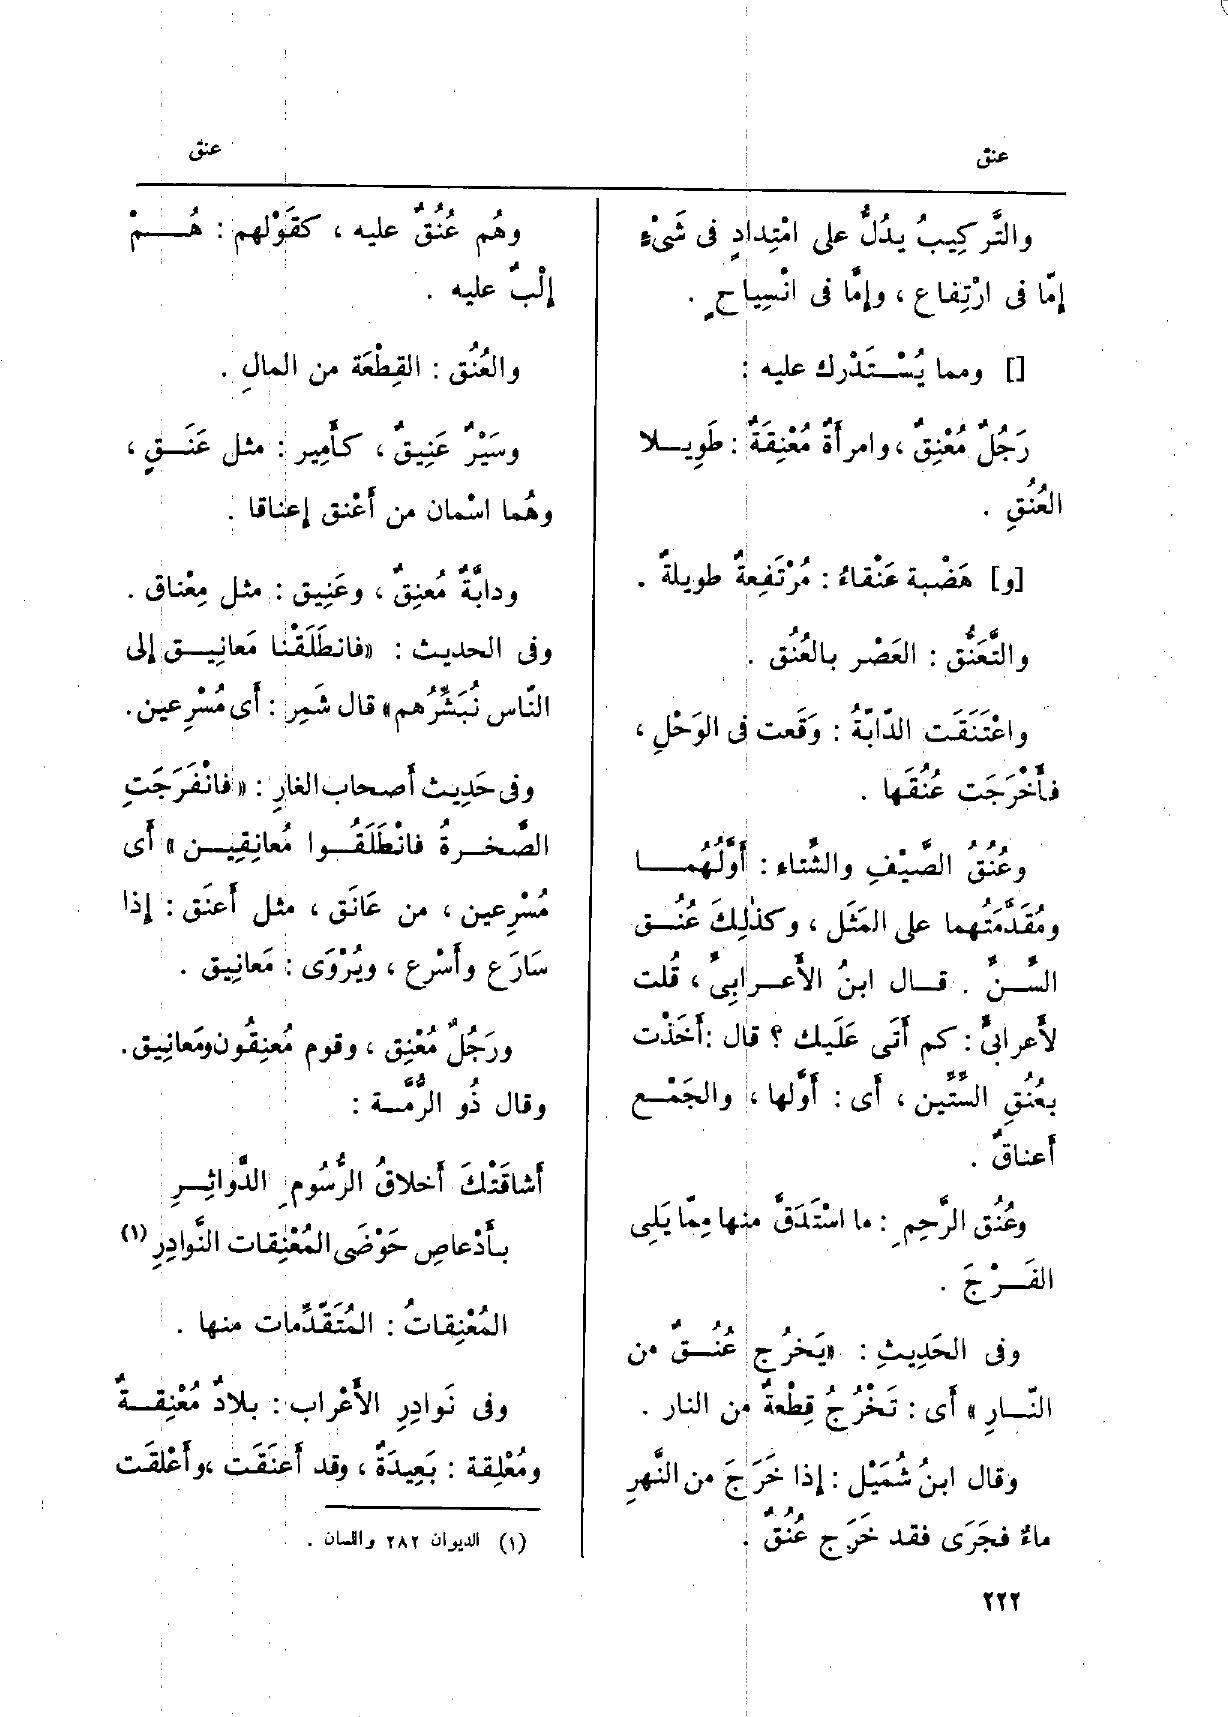 عنق
عنق
والتَّركِيبُ يدُلُّ على امْتِدادٍ فى شَىْءٍ
إمّا فى ارْتِفاع ، وإمَّا فى انْسِياحٍ .
[] ومما يُسْتَدْرك عليه :
رَجُلٌ مُعْنِقٌ ، وامرأَةٌ مُعْنِقَةٌ : طَوِيلا
العُنُقِ .
[و] هَضْبة عَنْقاءُ : مُرْتَفِعةٌ طويلةٌ .
والتَّعَنُّق : العَصْر بالعُنُق .
واعْتَنَقَت الدّابّةُ : وَقَعت فى الوَحْلِ ،
فأَخْرَجَت عُنُقَها .
وعُنُقُ الصَّيْفِ والشِّتاء : أَوَّلُهُما
ومُقَدَّمَتُهما على المَثَل ، وكذٰلِكَ عُنُق
السِّنِّ . قال ابنُ الأَعرابِىِّ ، قُلت
لأَعرابىٍّ : كم أَتَى عَلَيك ؟ قال : أَخَذْت
بعُنُقِ السِّتِّين ، أَى : أَوَّلها ، والجَمْع
أَعناقٌ .
وعُنُق الرَّحِمِ : ما اسْتَدَقَّ منها مِمّا يَلِى
الفَرْجَ .
وفى الحَدِيثِ : «يَخرُج عُنُقٌ من
النّارِ » أَى : تَخْرُجُ قِطْعةٌ من النار .
وَقال ابنُ شُمَيْل : إذا خَرَجَ من النَّهرِ
ماءٌ فجَرَى فقد خَرَج عُنُقٌ .
وهُم عُنُقٌ عليه ، كقَوْلهم : هُمْ
إلْبٌ عليه .
والعُنُق : القِطْعَة من المالِ .
وسَيْرٌ عَنِيقٌ ، كأَمِير : مثل عَنَقٍ ،
وهُما اسْمان من أَعْنق إعناقا .
ودابَّةٌ مُعنِقٌ ، وعَنِيق : مثل مِعْناق .
وفى الحديث : «فانطَلَقْنا مَعانِيق إلى
النّاس نُبَشِّرُهم» قال شَمِر : أَى مُسْرِعين .
وفى حَدِيث أَصحاب الغارِ : « فانْفَرَجَتِ
الصَّخرةُ فانْطَلَقُوا مُعانِقِين » أَى
مُسْرِعين ، من عَانَق ، مثل أَعنَق : إذا
سَارَع وأَسْرع ، ويُرْوَى : مَعانِيق .
ورَجُلٌ مُعْنِق ، وقوم مُعنِقُون ومَعانِيق .
وقال ذُو الرُّمَّة :
أَشاقَتْكَ أَخلاقُ الرُّسُومِ الدَّواثِرِ
بأَدْعاصِ حَوْضَى المُعْنِقات النَّوادِرِ (١)
المُعْنِقاتُ : المُتَقَدِّمات منها .
وفى نَوادِرِ الأَعْراب : بلادٌ مُعْنِقةٌ
ومُعْلِقة : بَعِيدَةٌ ، وقد أَعنَقَت ، وأَعْلَقَت
(١) الديوان ٢٨٢ واللسان .
٢٢٢